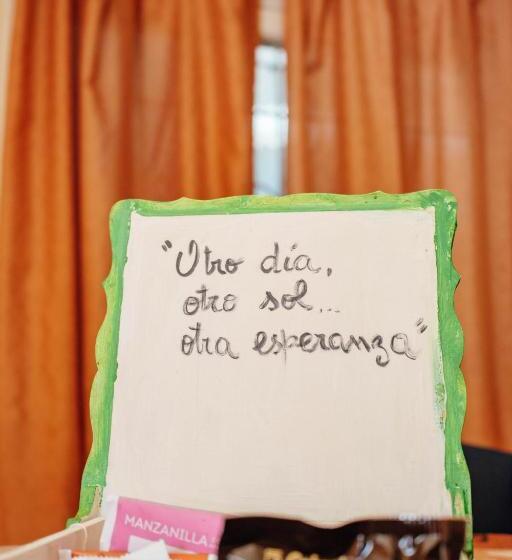 "Otro día,
otro sol...
otra esperanza"
MANZANILLA